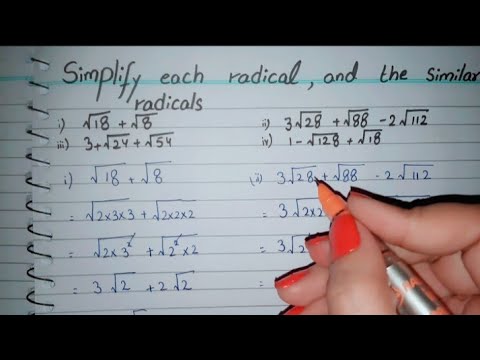 Simplify each radical, and the similar
radicals
i) √18 + √8
ii) 3√28 + √88 - 2√112
iii) 3+√24 + √54
iv) 1-√128 + √18
i) √18 + √8
(ii) 3√28 + √88 - 2√112
= √2×3×3 + √2×2×2
= 3√2×2
= √2×3² + √2²×2
= 3√2
= 3√2 + 2√2
=